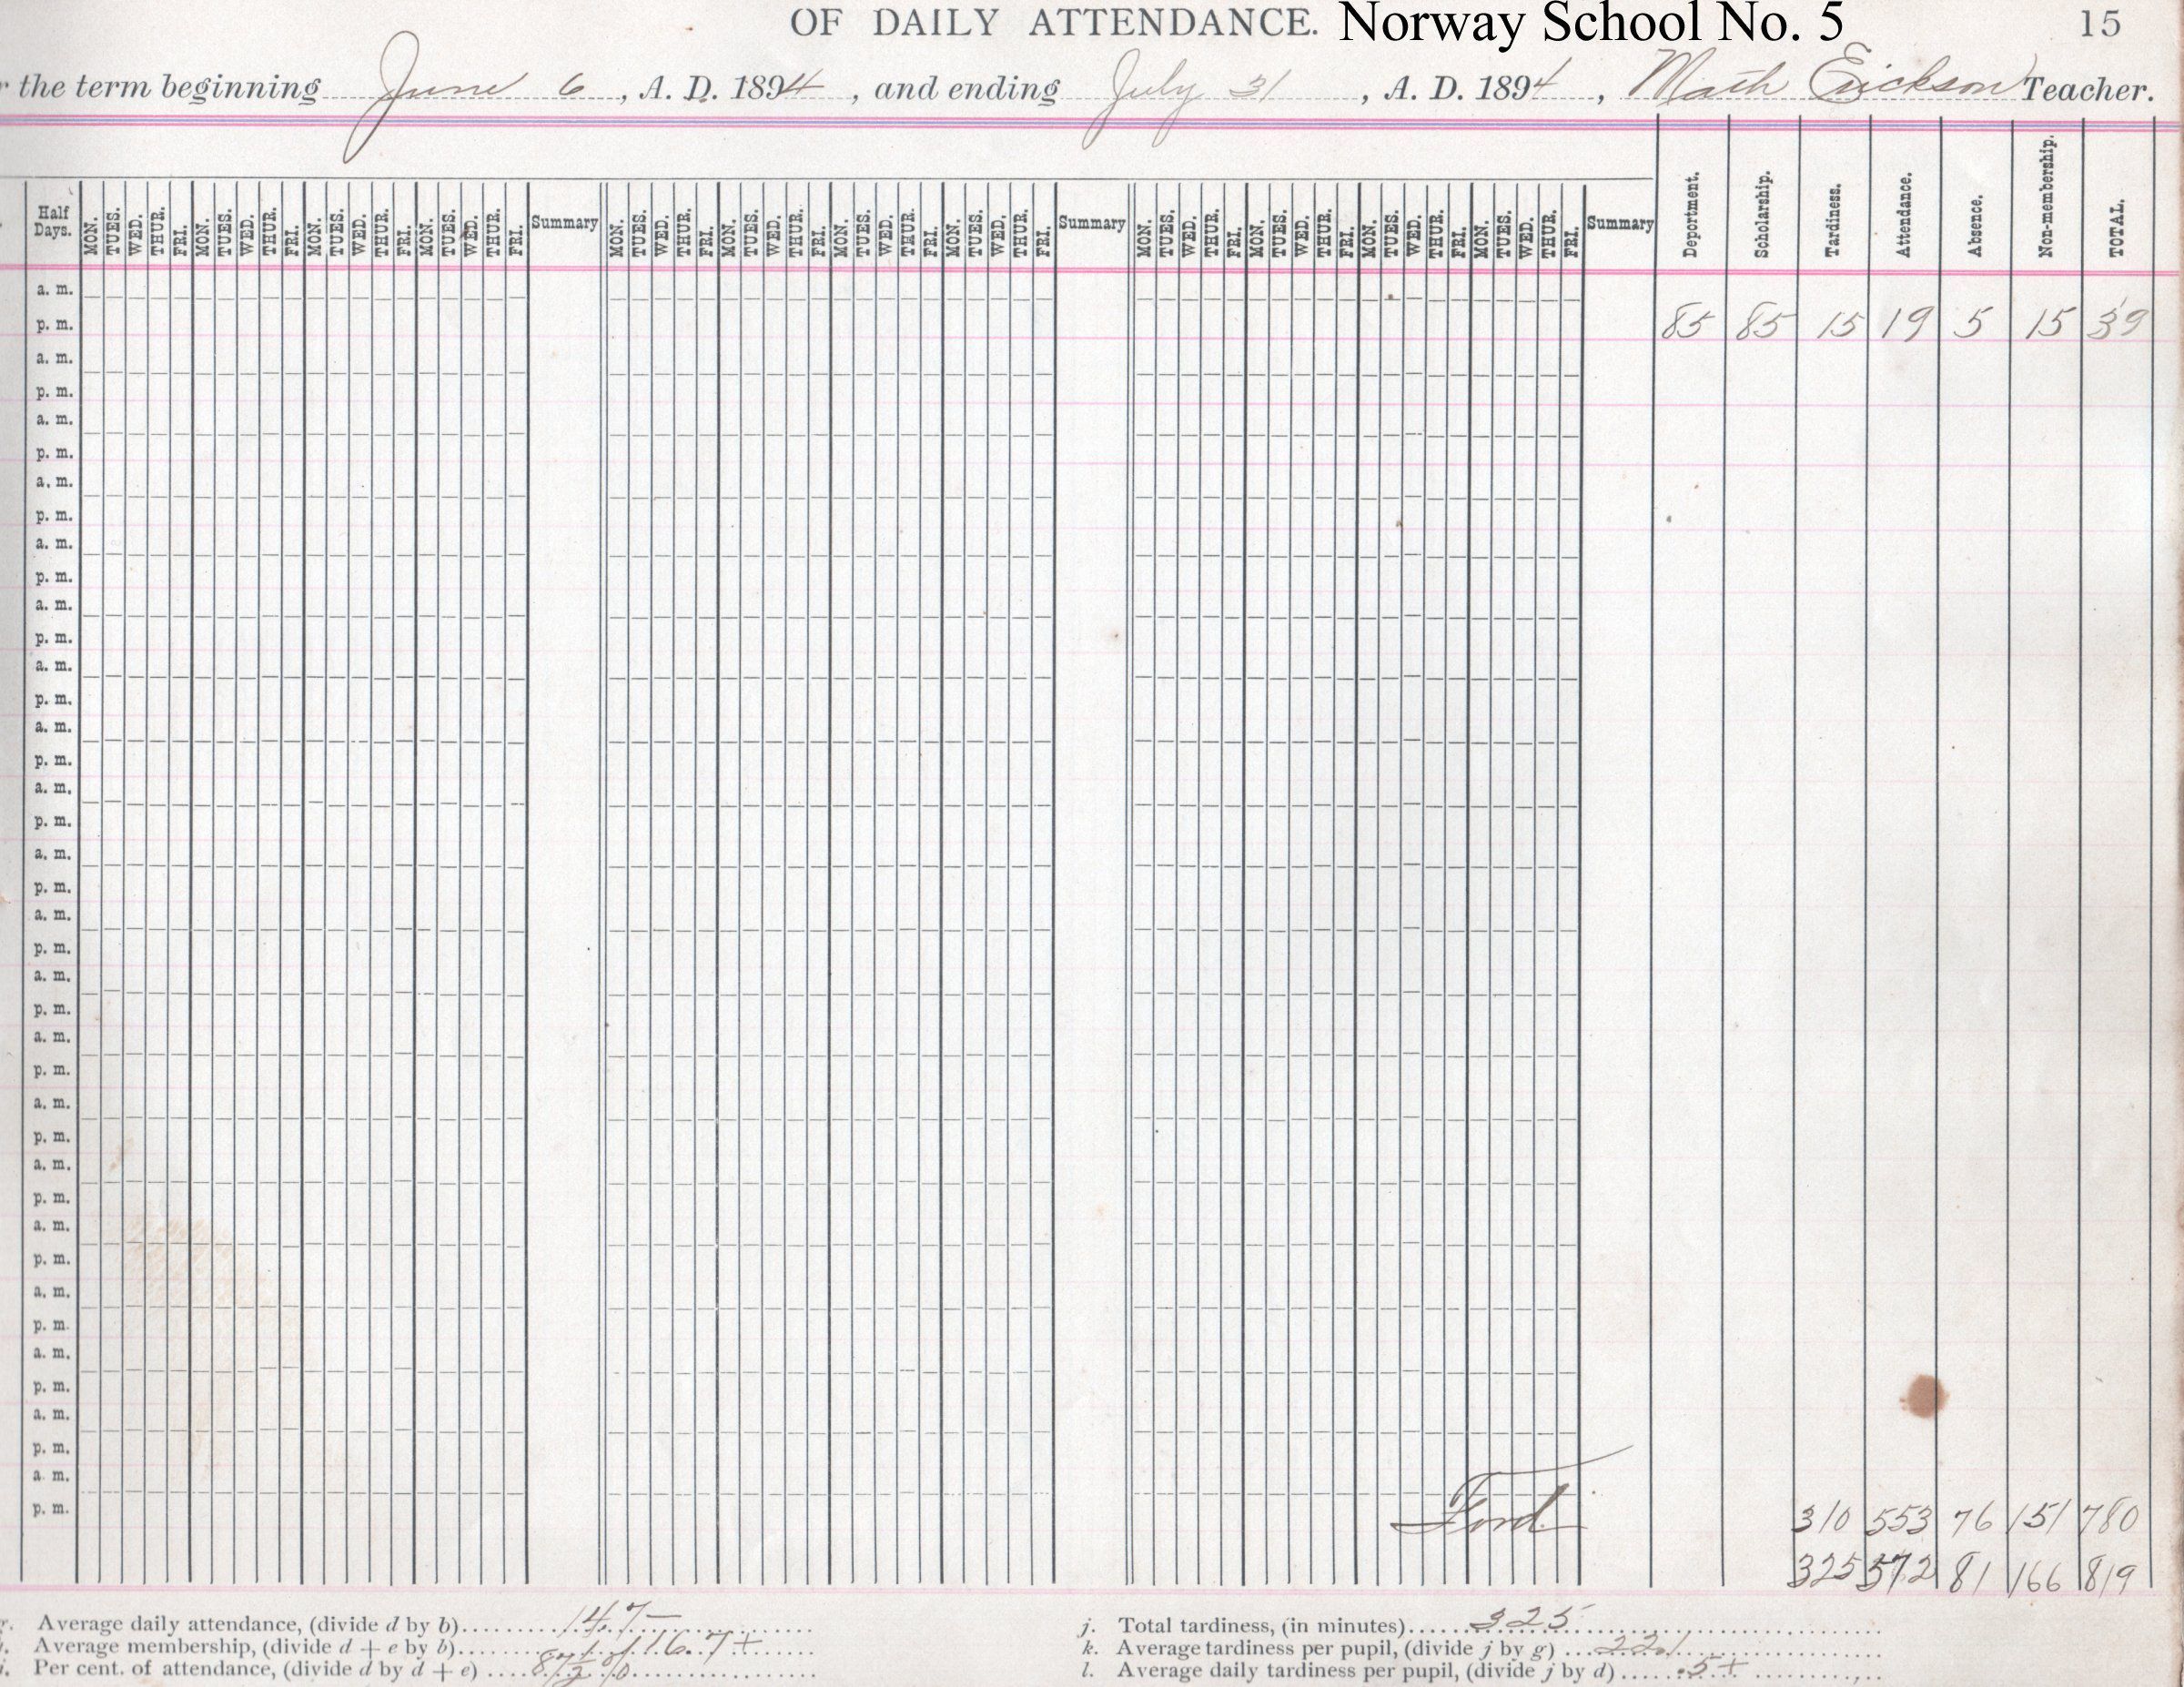 OF DAILY ATTENDANCE. Norway School No. 5 15
the term beginning June 6, A. D. 1894, and ending July 31, A. D. 1894, Math Erickson Teacher.
Half Days. MON. TUES. WED. THUR. FRI. MON. TUES. WED. THUR. FRI. MON. TUES. WED. THUR. FRI. MON. TUES. WED. THUR. FRI. Summary MON. TUES. WED. THUR. FRI. MON. TUES. WED. THUR. FRI. MON. TUES. WED. THUR. FRI. MON. TUES. WED. THUR. FRI. Summary MON. TUES. WED. THUR. FRI. MON. TUES. WED. THUR. FRI. MON. TUES. WED. THUR. FRI. MON. TUES. WED. THUR. FRI. Summary Deportment. Scholarship. Tardiness. Attendance. Absence. Non-membership. TOTAL.
a. m.
p. m. 85 85 15 19 5 15 39
a. m.
p. m.
a. m.
p. m.
a. m.
p. m.
a. m.
p. m.
a. m.
p. m.
a. m.
p. m.
a. m.
p. m.
a. m.
p. m.
a. m.
p. m.
a. m.
p. m.
a. m.
p. m.
a. m.
p. m.
a. m.
p. m.
a. m.
p. m.
a. m.
p. m.
a. m.
p. m.
a. m.
p. m.
a. m.
p. m.
a. m.
p. m. Ford 310 553 76 151 780
325 572 81 166 819
Average daily attendance, (divide d by b) 14.7–
Average membership, (divide d + e by b) 16.7+
Per cent. of attendance, (divide d by d + e) 87½ %
j. Total tardiness, (in minutes) 325
k. Average tardiness per pupil, (divide j by g) 22.1
l. Average daily tardiness per pupil, (divide j by d) .5+